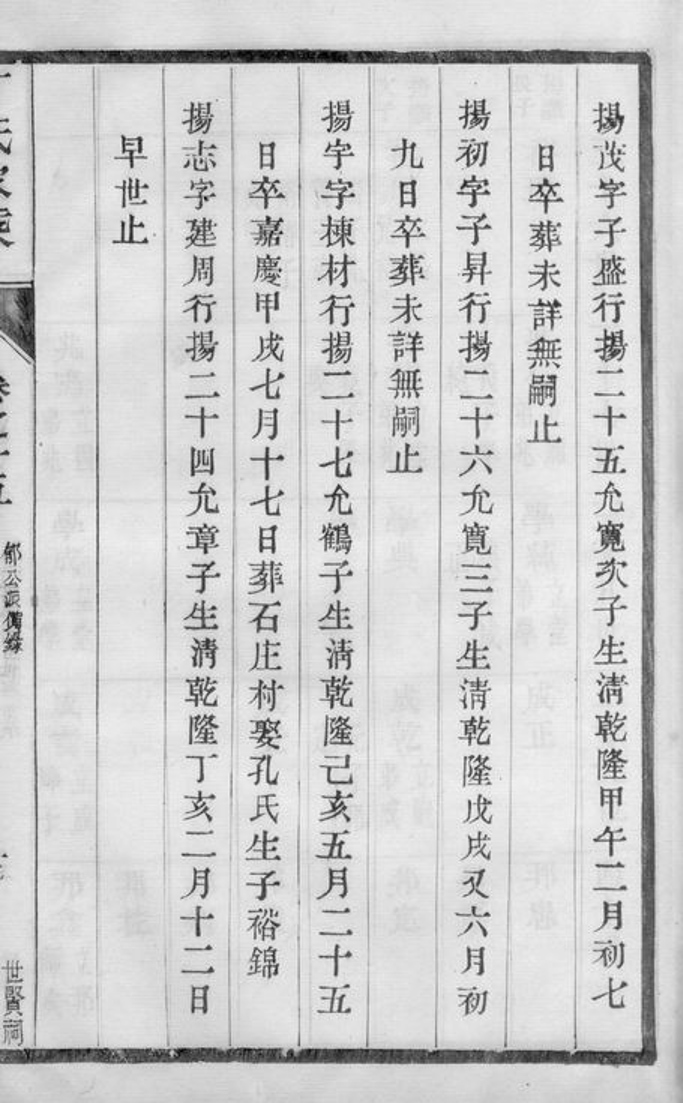 揚茂字子盛行揚二十五允寬次子生清乾隆甲午二月初七
日卒葬未詳無嗣止
揚初字子昇行揚二十六允寬三子生清乾隆戊戌又六月初
九日卒葬未詳無嗣止
揚宇字棟材行揚二十七允鶴子生清乾隆己亥五月二十五
日卒嘉慶甲戌七月十七日葬石庄村娶孔氏生子裕錦
揚志字建周行揚二十四允章子生清乾隆丁亥二月十二日
早世止
氏家乘
卷之十五
郁公派備錄
世賢祠